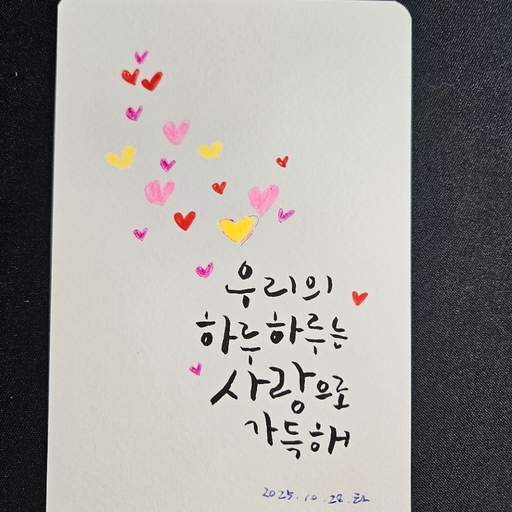 우리의
하루하루는
사랑으로
가득해
2025.10.28.화